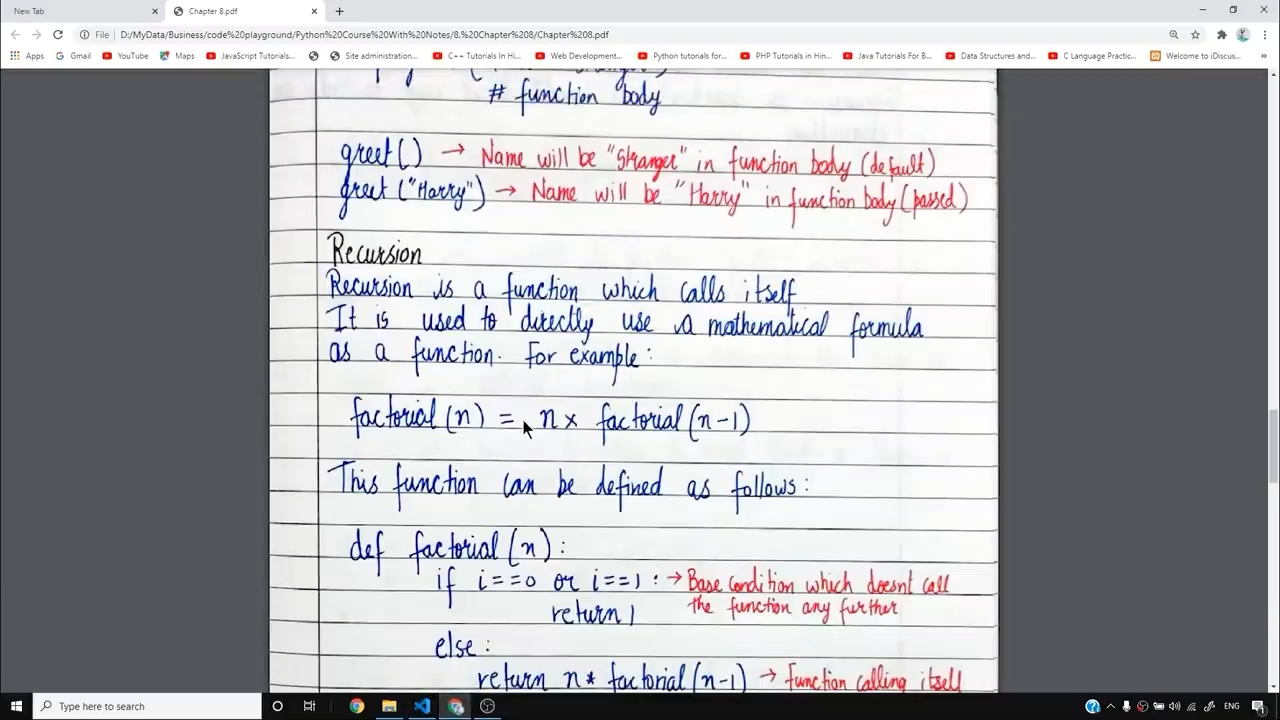 New Tab
Chapter 8.pdf
File
D:/MyData/Business/code%20playground/Python%20Course%20With%20Notes/8.%20Chapter%208/Chapter%208.pdf
Apps
Gmail
YouTube
Maps
JavaScript Tutorials...
Site administration...
C++ Tutorials In Hi...
Web Development...
Python tutorials for...
PHP Tutorials in Hin...
Java Tutorials For B...
Data Structures and...
C Language Practic...
Welcome to iDiscus...
# function body
greet() → Name will be "Stranger" in function body (default)
greet ("Harry") → Name will be "Harry" in function body (passed)
Recursion
Recursion is a function which calls itself
It is used to directly use a mathematical formula
as a function. For example:
factorial (n) = n × factorial (n-1)
This function can be defined as follows:
def factorial (n):
if i==0 or i==1: → Base condition which doesnt call
the function any further
return 1
else:
return n* factorial (n-1) → Function calling itself
Type here to search
ENG